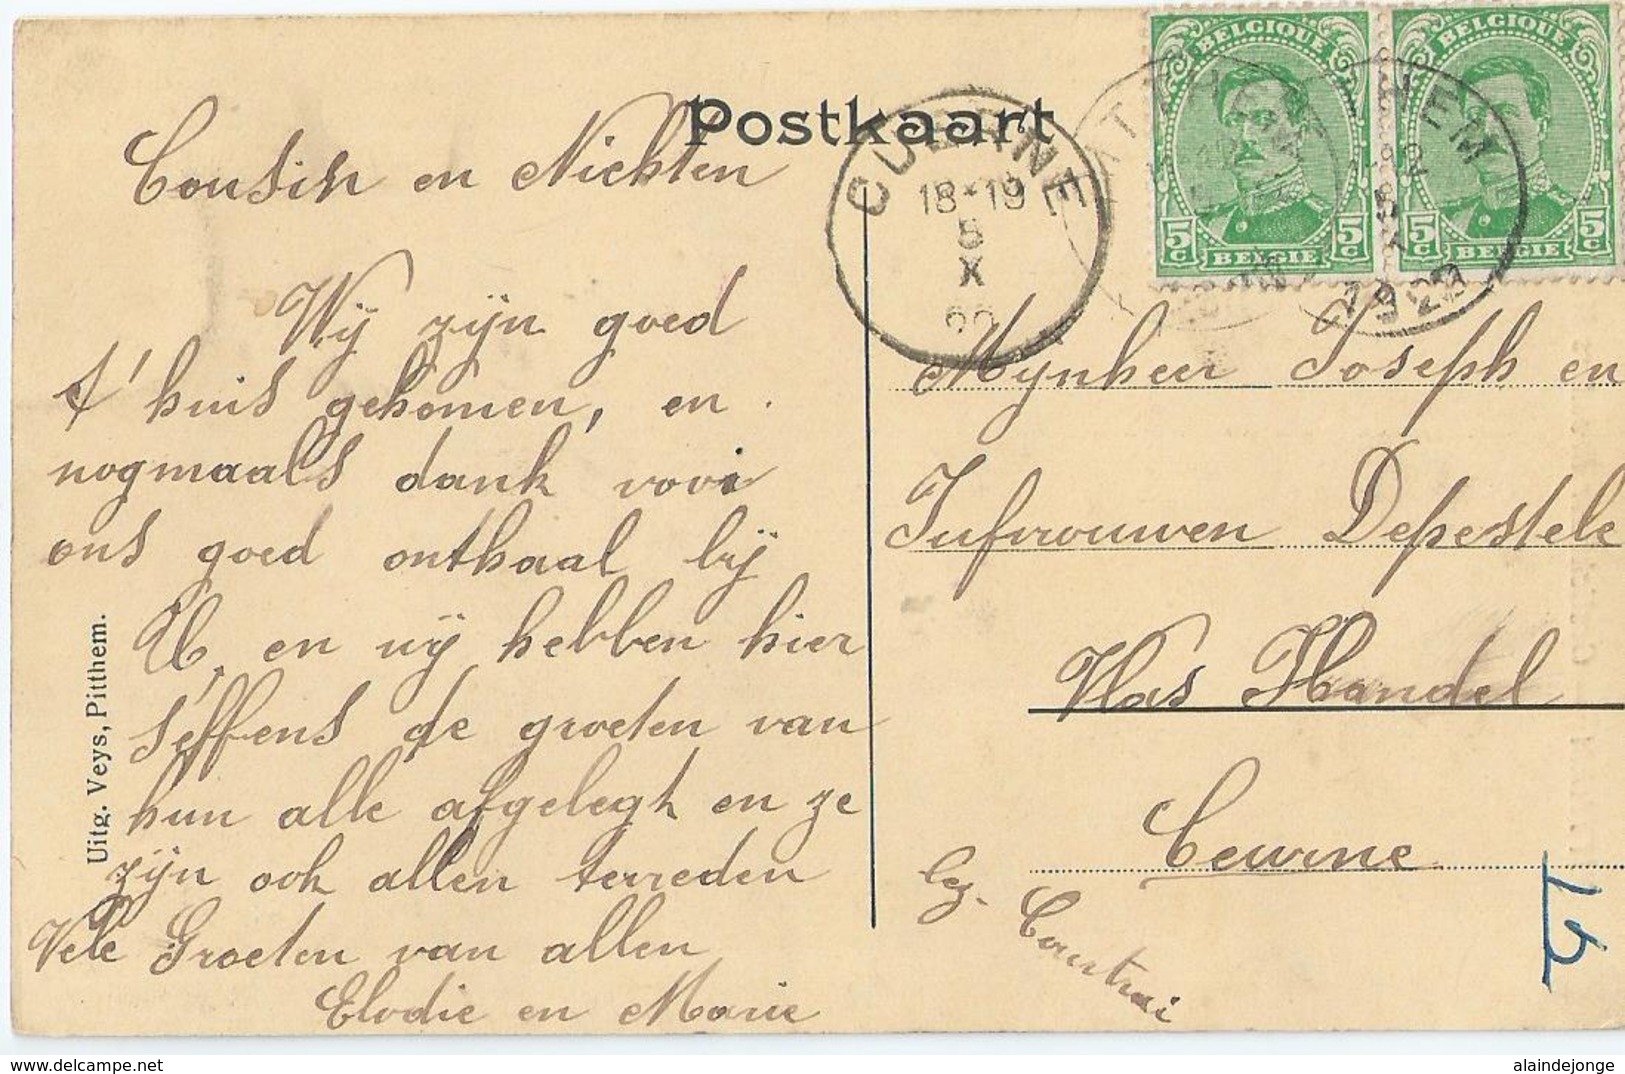 Postkaart
BELGIQUE
BELGIQUE
5c BELGIE 5c
5c BELGIE 5c
CUERNE
18-19
5
X
1920
Cousin en Nichten
Wij zijn goed
t'huis gekomen, en
nogmaals dank voor
ons goed onthaal bij
U, en wij hebben hier
seffens de groeten van
hun alle afgelegt en ze
zijn ook allen terreden
Vele Groeten van allen
Elodie en Marie
Mynheer Joseph en
Jufrouwen Depestele
Vlas Handel
Ceurne
lez. Courtrai
15
Uitg. Veys, Pitthem.
https://www.delcampe.net
alaindejonge